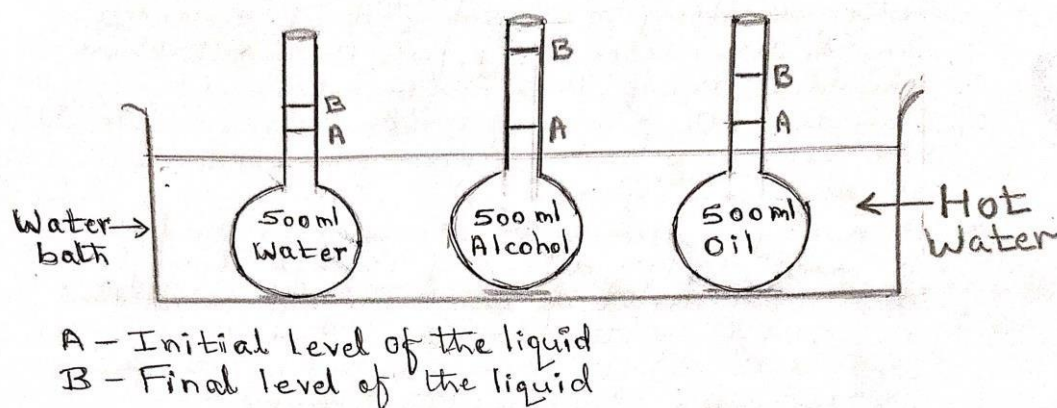 B
A
B
A
B
A
Water bath
500ml
Water
500ml
Alcohol
500ml
Oil
Hot
Water
A - Initial level of the liquid
B - Final level of the liquid